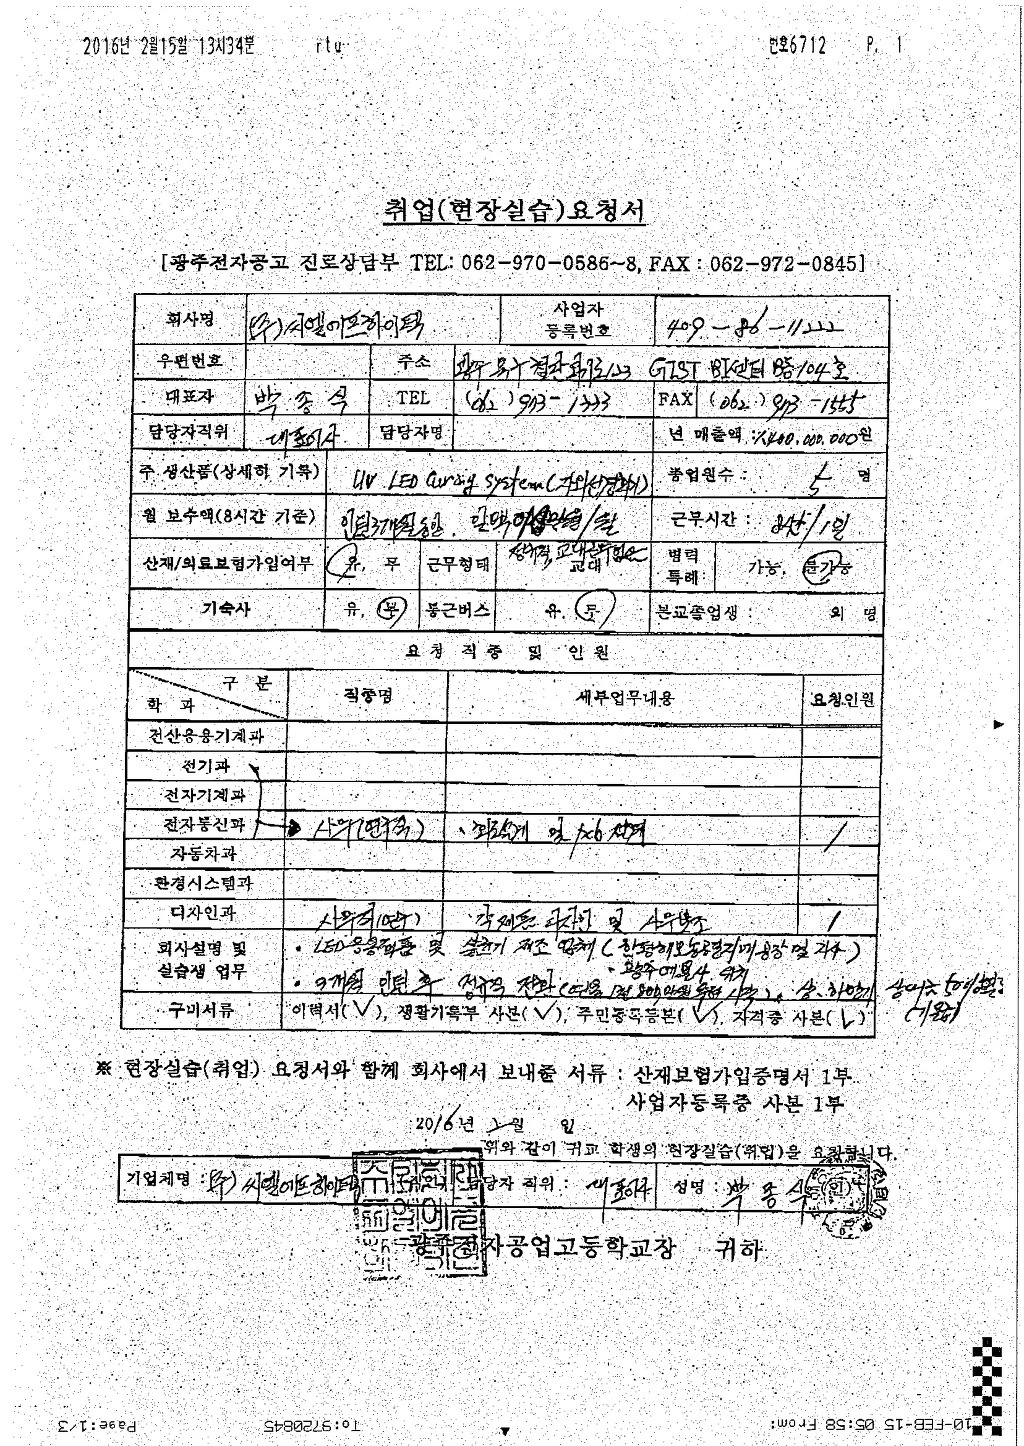 2016년 2월15일 13시34분 rtu 번호6712 P. 1
취업(현장실습)요청서
[광주전자공고 진로상담부 TEL: 062-970-0586~8, FAX : 062-972-0845]
회사명 (주)씨엘에프하이텍 사업자 등록번호 409-86-11222
우편번호 주소 광주 북구 첨단과기로123 GIST BI센터 B동104호
대표자 박종식 TEL (062) 973-1333 FAX (062) 973-1555
담당자직위 대표이사 담당자명 년 매출액 : 1,400,000,000원
주 생산품(상세히 기록) UV LED Curing System (자외선경화기) 종업원수 : 5 명
월 보수액(8시간 기준) 인턴3개월동안 /월 근무시간 : 8시간/1일
산재/의료보험가입여부 유. 무 근무형태 교대 병력 특례: 가능. 불가능
기숙사 유. 무 통근버스 유. 무 본교졸업생 : 외 명
요 청 직 종 및 인 원
구 분 학 과 직종명 세부업무내용 요청인원
전산응용기계과
전기과
전자기계과
전자통신과 사무(연구직) · 회로설계 및 pcb 설계 1
자동차과
환경시스템과
디자인과 사무직(연구) · 각 제품 디자인 및 사무보조 1
회사설명 및 실습생 업무 · LED응용제품 및 살균기 제조 업체
· 3개월 인턴 후 정규직 전환
구비서류 이력서( ∨ ), 생활기록부 사본( ∨ ), 주민등록등본( ∨ ), 자격증 사본( ∨ )
※ 현장실습(취업) 요청서와 함께 회사에서 보내줄 서류 : 산재보험가입증명서 1부
사업자등록증 사본 1부
2016년 2월 일
위와 같이 귀교 학생의 현장실습(취업)을 요청합니다.
기업체명 : (주)씨엘에프하이텍 담당자 직위 : 대표이사 성명 : 박종식 (인)
광주전자공업고등학교장 귀하
10-FEB-15 05:58 From: To:9720845 Page:1/3